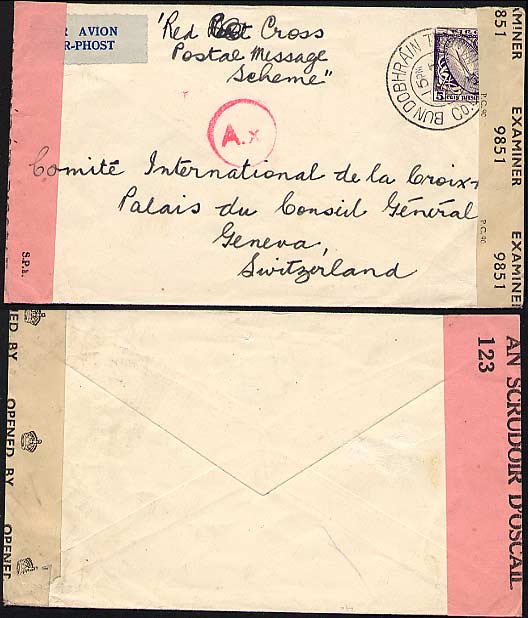 AVION
R-PHOST
'Red Cross
Postal Message
Scheme"
A.x
Comité International de la Croix-
Palais du Conseil Général
Geneva,
Switzerland
BUNDOBHRÁIN
Co.
5 PM
5
S.P.L.
P.C. 90
P.C. 90
9851
EXAMINER
9851
EXAMINER
9851
OPENED BY
OPENED
AN SCRUDOIR D'OSCAIL
123